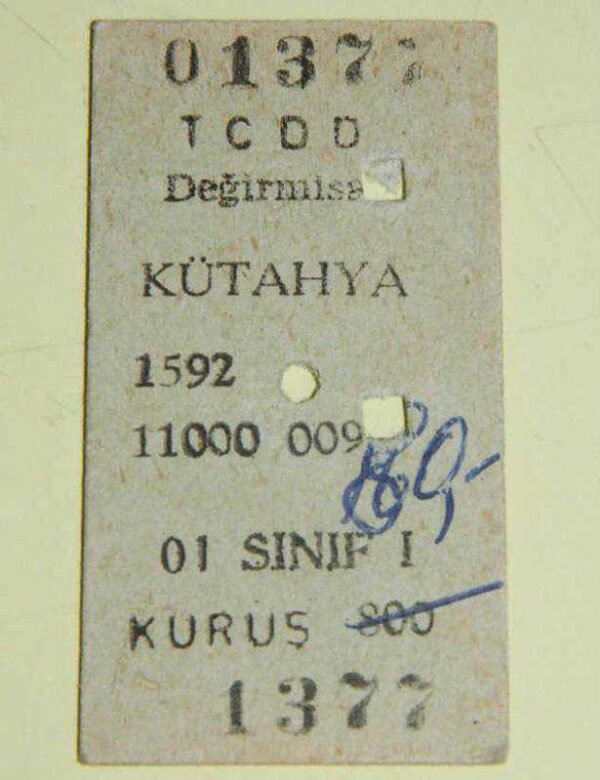 01377
TCDD
Değirmisa
KÜTAHYA
1592
11000 009
01 SINIF I
KURUŞ 800
1377